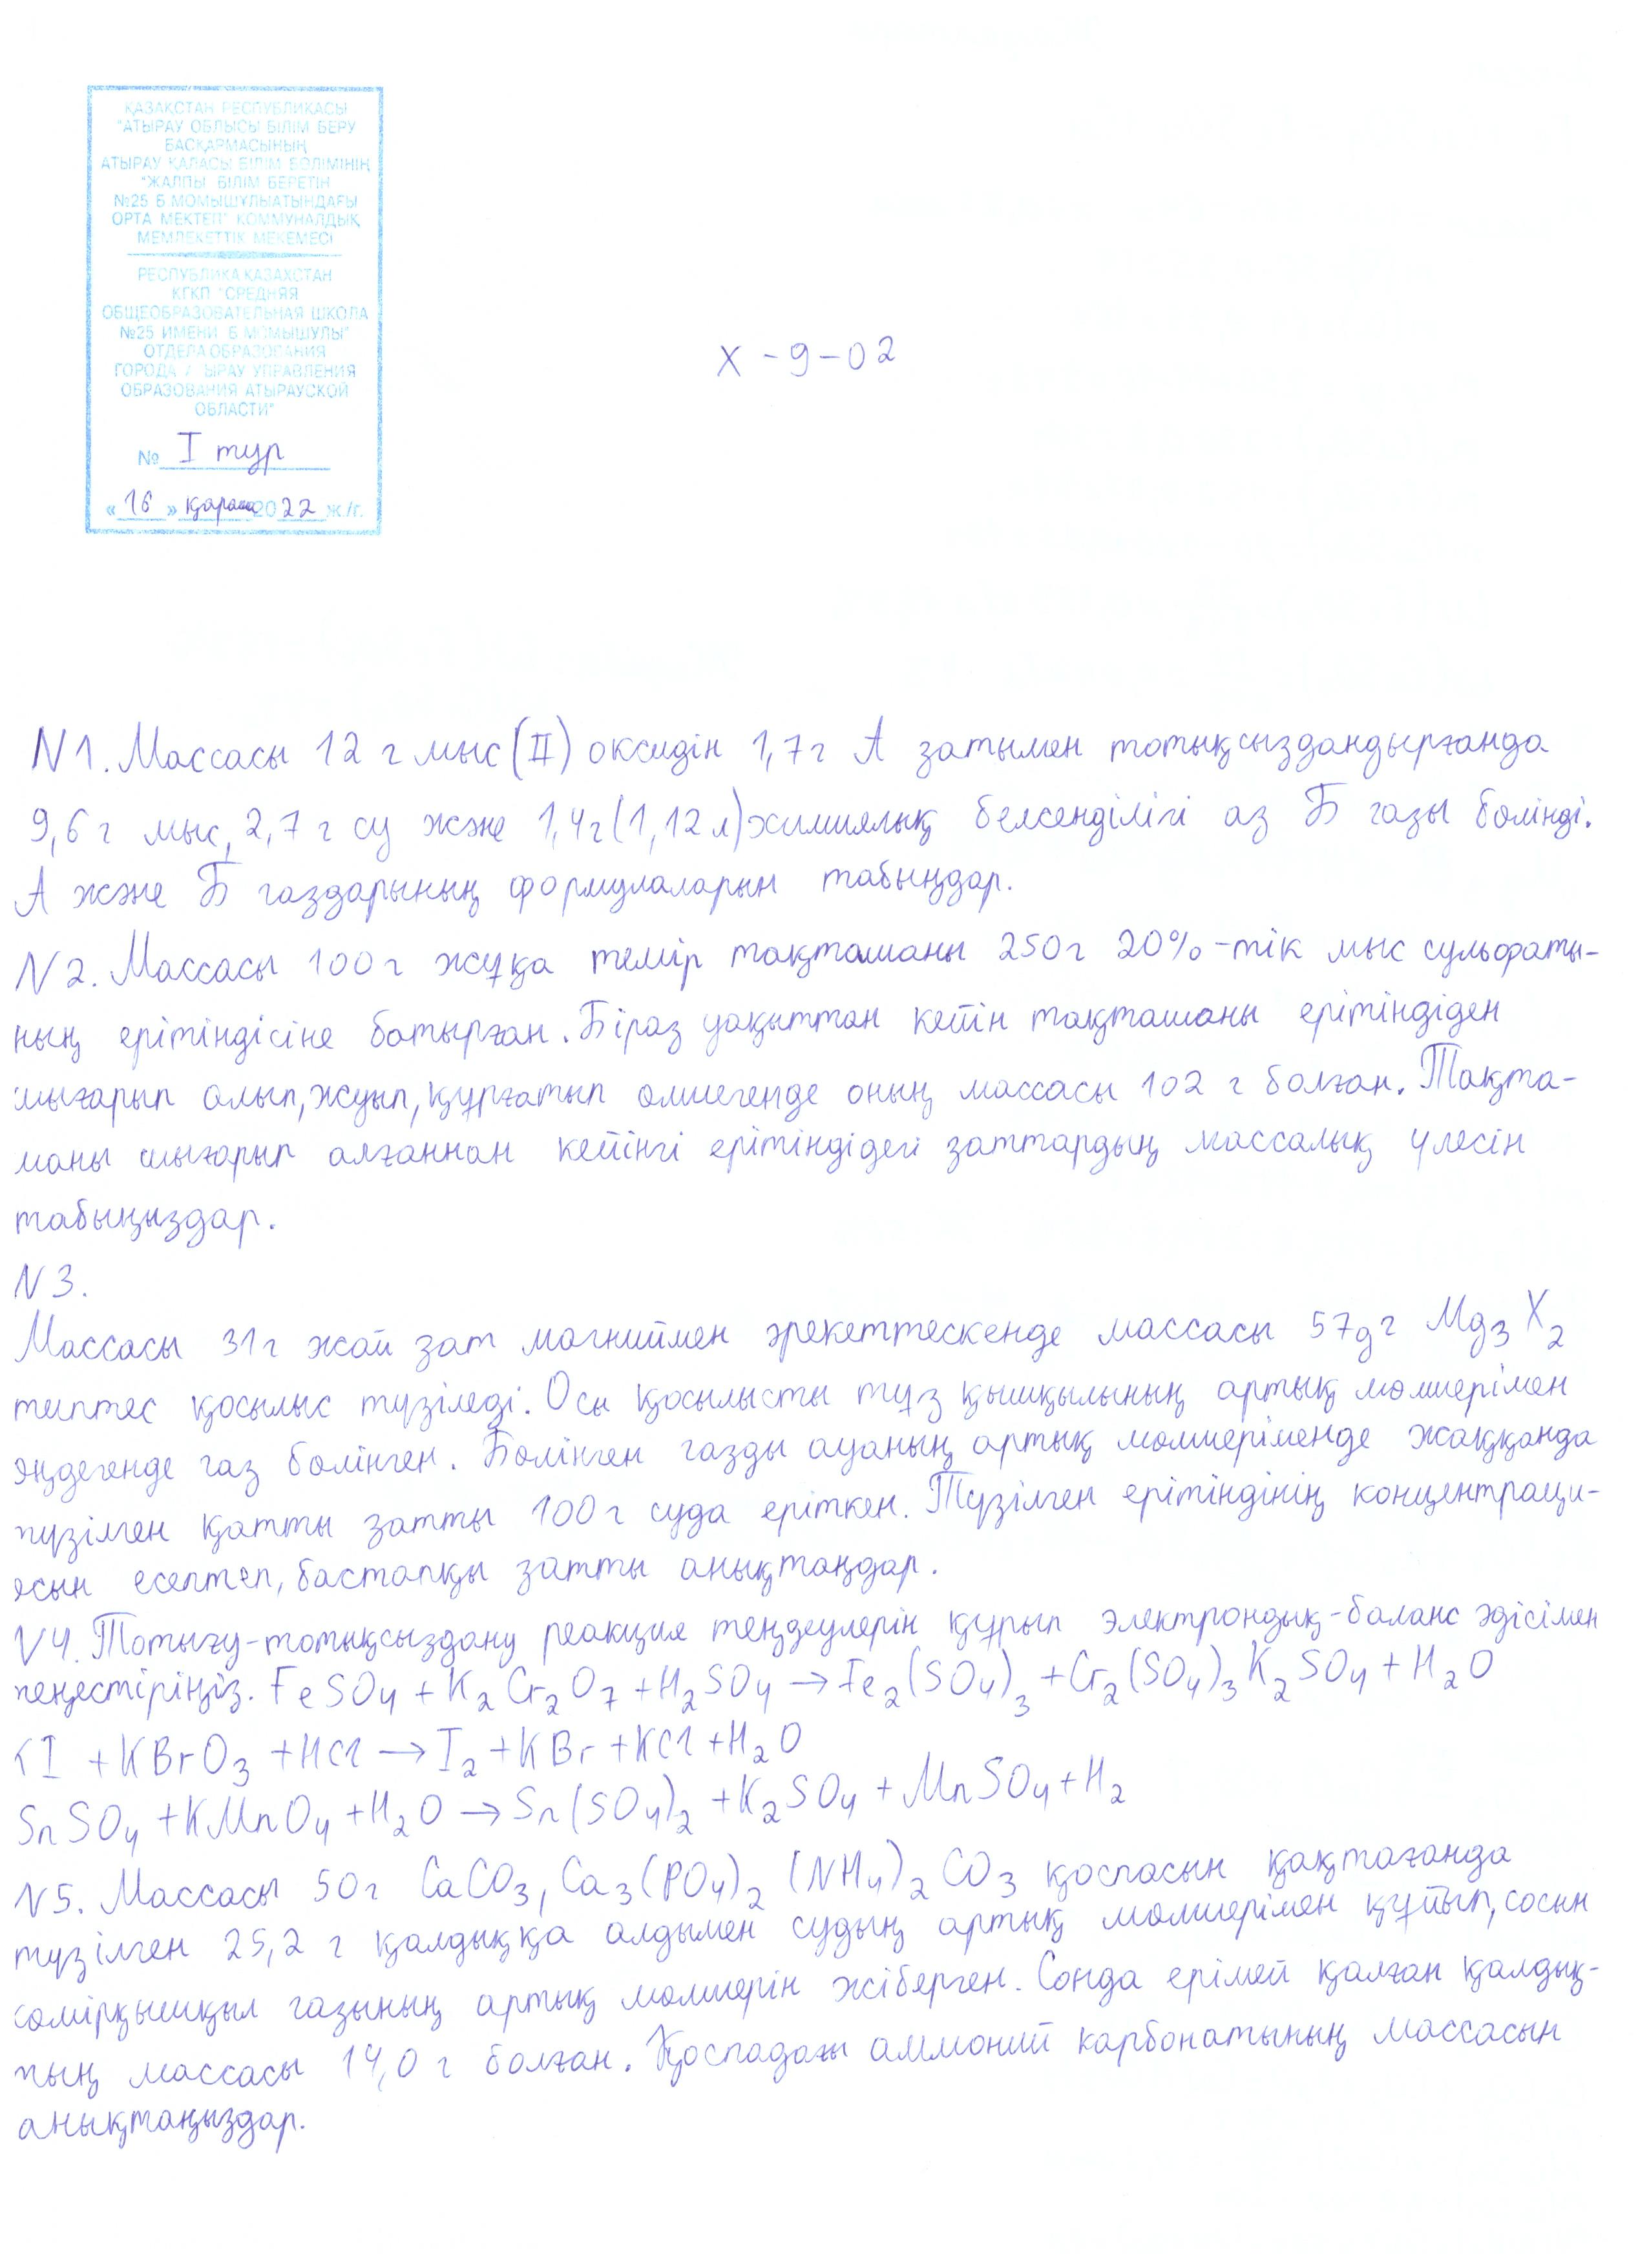 ҚАЗАҚСТАН РЕСПУБЛИКАСЫ
"АТЫРАУ ОБЛЫСЫ БІЛІМ БЕРУ
БАСҚАРМАСЫНЫҢ
АТЫРАУ ҚАЛАСЫ БІЛІМ БӨЛІМІНІҢ
"ЖАЛПЫ БІЛІМ БЕРЕТІН
№25 Б.МОМЫШҰЛЫАТЫНДАҒЫ
ОРТА МЕКТЕП" КОММУНАЛДЫҚ
МЕМЛЕКЕТТІК МЕКЕМЕСІ
РЕСПУБЛИКА КАЗАХСТАН
КГКП "СРЕДНЯЯ
ОБЩЕОБРАЗОВАТЕЛЬНАЯ ШКОЛА
№25 ИМЕНИ Б МОМЫШУЛЫ"
ОТДЕЛА ОБРАЗОВАНИЯ
ГОРОДА ЫРАУ УПРАВЛЕНИЯ
ОБРАЗОВАНИЯ АТЫРАУСКОЙ
ОБЛАСТИ"
№ I тур
«16» қараша 2022 ж./г.
X-9-02
N1. Массасы 12 г мыс (II) оксидін 1,7г А затымен тотықсыздандырғанда
9,6 г мыс, 2,7 г су және 1,4г (1,12 л) химиялық белсенділігі аз Б газы бөлінді.
А және Б газдарының формулаларын табыңдар.
N2. Массасы 100 г жұқа темір тақташаны 250г 20%-тік мыс сульфаты-
ның ерітіндісіне батырған. Біраз уақыттан кейін тақташаны ерітіндіден
шығарып алып, жуып, құрғатып өлшегенде оның массасы 102 г болған. Тақта-
шаны шығарып алғаннан кейінгі ерітіндідегі заттардың массалық үлесін
табыңыздар.
N3.
Массасы 31г жай зат магниймен әрекеттескенде массасы 57g г Mg3 X2
типтес қосылыс түзіледі. Осы қосылысты тұз қышқылының артық мөлшерімен
өңдегенде газ бөлінген. Бөлінген газды ауаның артық мөлшерінде жаққанда
түзілген қатты затты 100 г суда еріткен. Түзілген ерітіндінің концентраци-
ясын есептеп, бастапқы затты анықтаңдар.
N4. Тотығу-тотықсыздану реакция теңдеулерін құрып электрондық-баланс әдісімен
теңестіріңіз. FeSO4 + K2Cr2O7 + H2SO4 → Fe2(SO4)3 + Cr2(SO4)3 K2SO4 + H2O
KI + KBrO3 + HCl → I2 + KBr + KCl + H2O
SnSO4 + KMnO4 + H2O → Sn(SO4)2 + K2SO4 + MnSO4 + H2
N5. Массасы 50г CaCO3, Ca3(PO4)2 (NH4)2CO3 қоспасын қақтағанда
түзілген 25,2 г қалдыққа алдымен судың артық мөлшерімен құйып, сосын
көмірқышқыл газының артық мөлшерін жіберген. Сонда ерімей қалған қалдық-
тың массасы 14,0 г болған. Қоспадағы аммоний карбонатының массасын
анықтаңыздар.